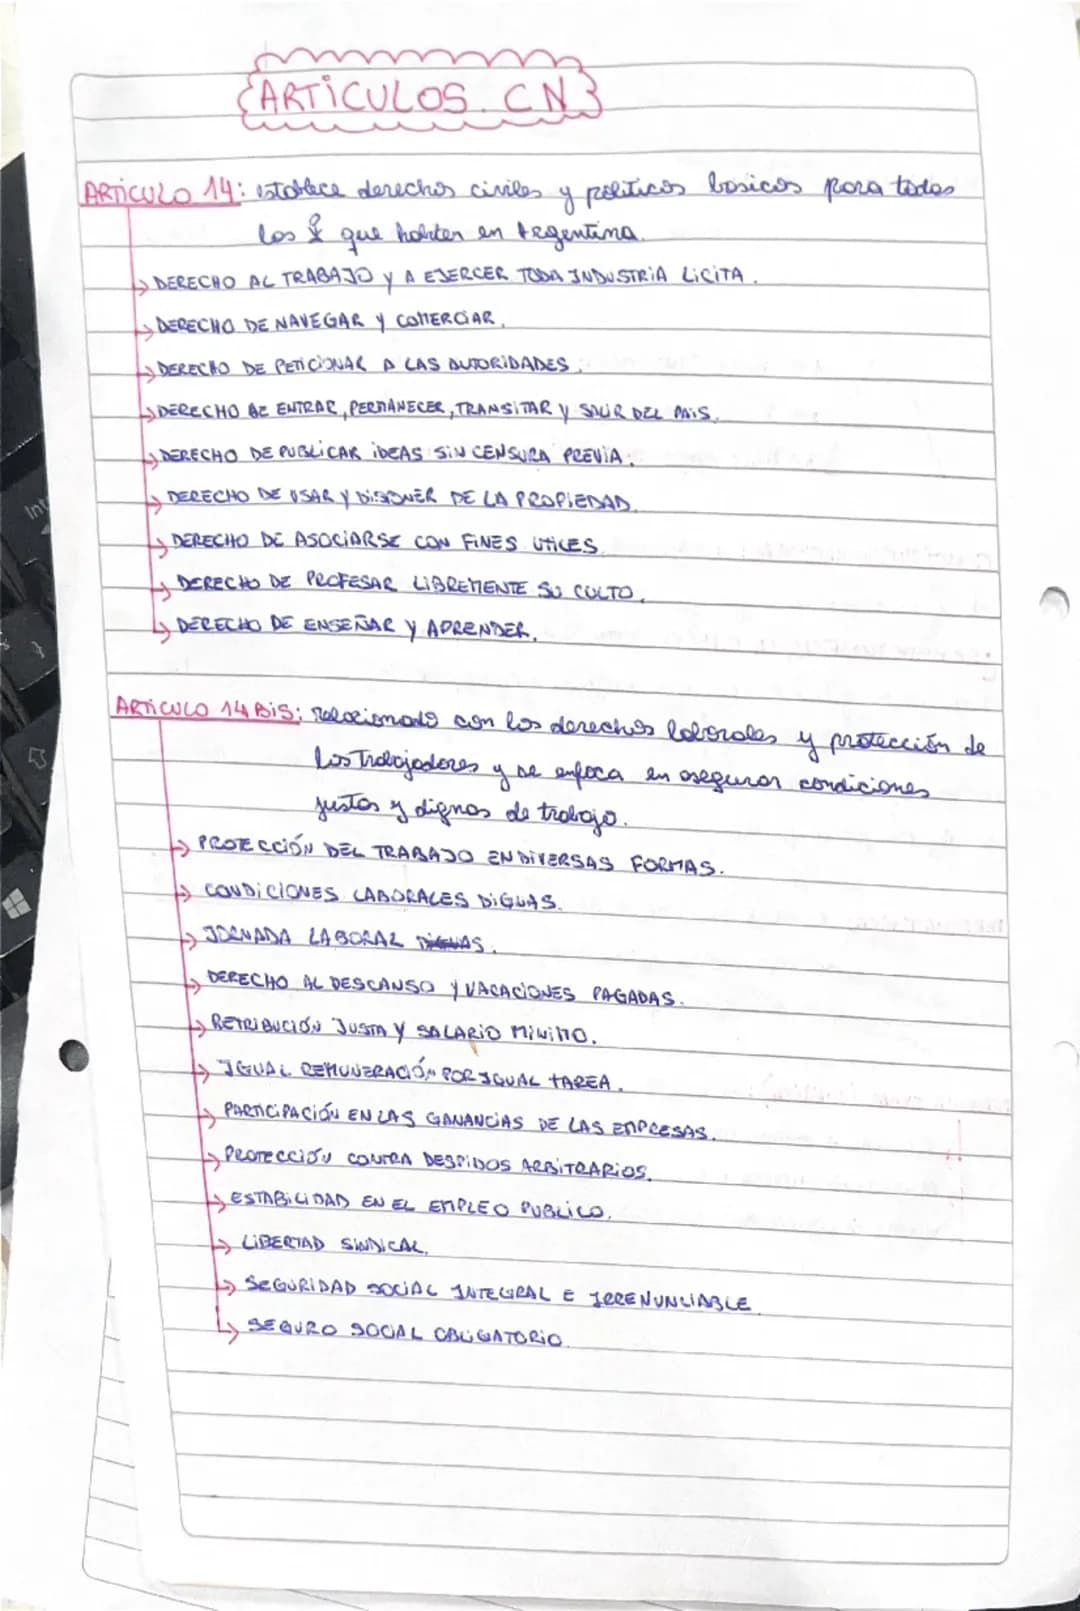 ARTÍCULOS. CN
ARTÍCULO 14: establece derechos civiles y políticos basicos para todas
los que habiten en Argentina.
DERECHO AL TRABAJO Y A EJERCER TODA INDUSTRIA LICITA.
DERECHO DE NAVEGAR Y COMERCIAR.
DERECHO DE PETICIONAR A LAS AUTORIDADES.
DERECHO DE ENTRAR, PERMANECER, TRANSITAR Y SALIR DEL PAIS.
DERECHO DE PUBLICAR IDEAS SIN CENSURA PREVIA.
DERECHO DE USAR Y DISPONER DE LA PROPIEDAD.
DERECHO DE ASOCIARSE CON FINES UTILES.
DERECHO DE PROFESAR LIBREMENTE SU CULTO.
DERECHO DE ENSEÑAR Y APRENDER.
ARTÍCULO 14 BIS: relacionado con los derechos laborales y protección de
los trabajadores y se enfoca en asegurar condiciones
justas y dignas de trabajo.
PROTECCIÓN DEL TRABAJO EN DIVERSAS FORMAS.
CONDICIONES LABORALES DIGNAS.
JORNADA LABORAL
DERECHO AL DESCANSO Y VACACIONES PAGADAS.
RETRIBUCIÓN JUSTA Y SALARIO MINIMO.
IGUAL REMUNERACIÓN POR IGUAL TAREA.
PARTICIPACIÓN EN LAS GANANCIAS DE LAS EMPRESAS.
PROTECCIÓN CONTRA DESPIDOS ARBITRARIOS.
ESTABILIDAD EN EL EMPLEO PUBLICO.
LIBERTAD SINDICAL.
SEGURIDAD SOCIAL INTEGRAL E IRRENUNCIABLE.
SEGURO SOCIAL OBLIGATORIO.